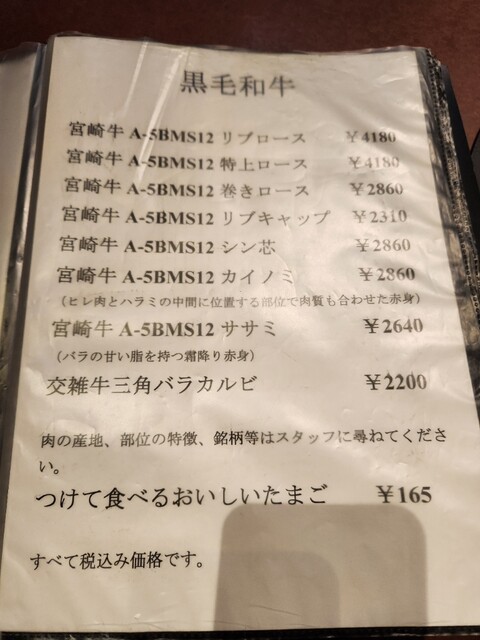 黒毛和牛
宮崎牛 A-5BMS12 リブロース ￥4180
宮崎牛 A-5BMS12 特上ロース ￥4180
宮崎牛 A-5BMS12 巻きロース ￥2860
宮崎牛 A-5BMS12 リブキャップ ￥2310
宮崎牛 A-5BMS12 シン芯 ￥2860
宮崎牛 A-5BMS12 カイノミ ￥2860
（ヒレ肉とハラミの中間に位置する部位で肉質も合わせた赤身）
宮崎牛 A-5BMS12 ササミ ￥2640
（バラの甘い脂を持つ霜降り赤身）
交雑牛三角バラカルビ ￥2200
肉の産地、部位の特徴、銘柄等はスタッフに尋ねてくださ
い。
つけて食べるおいしいたまご ￥165
すべて税込み価格です。